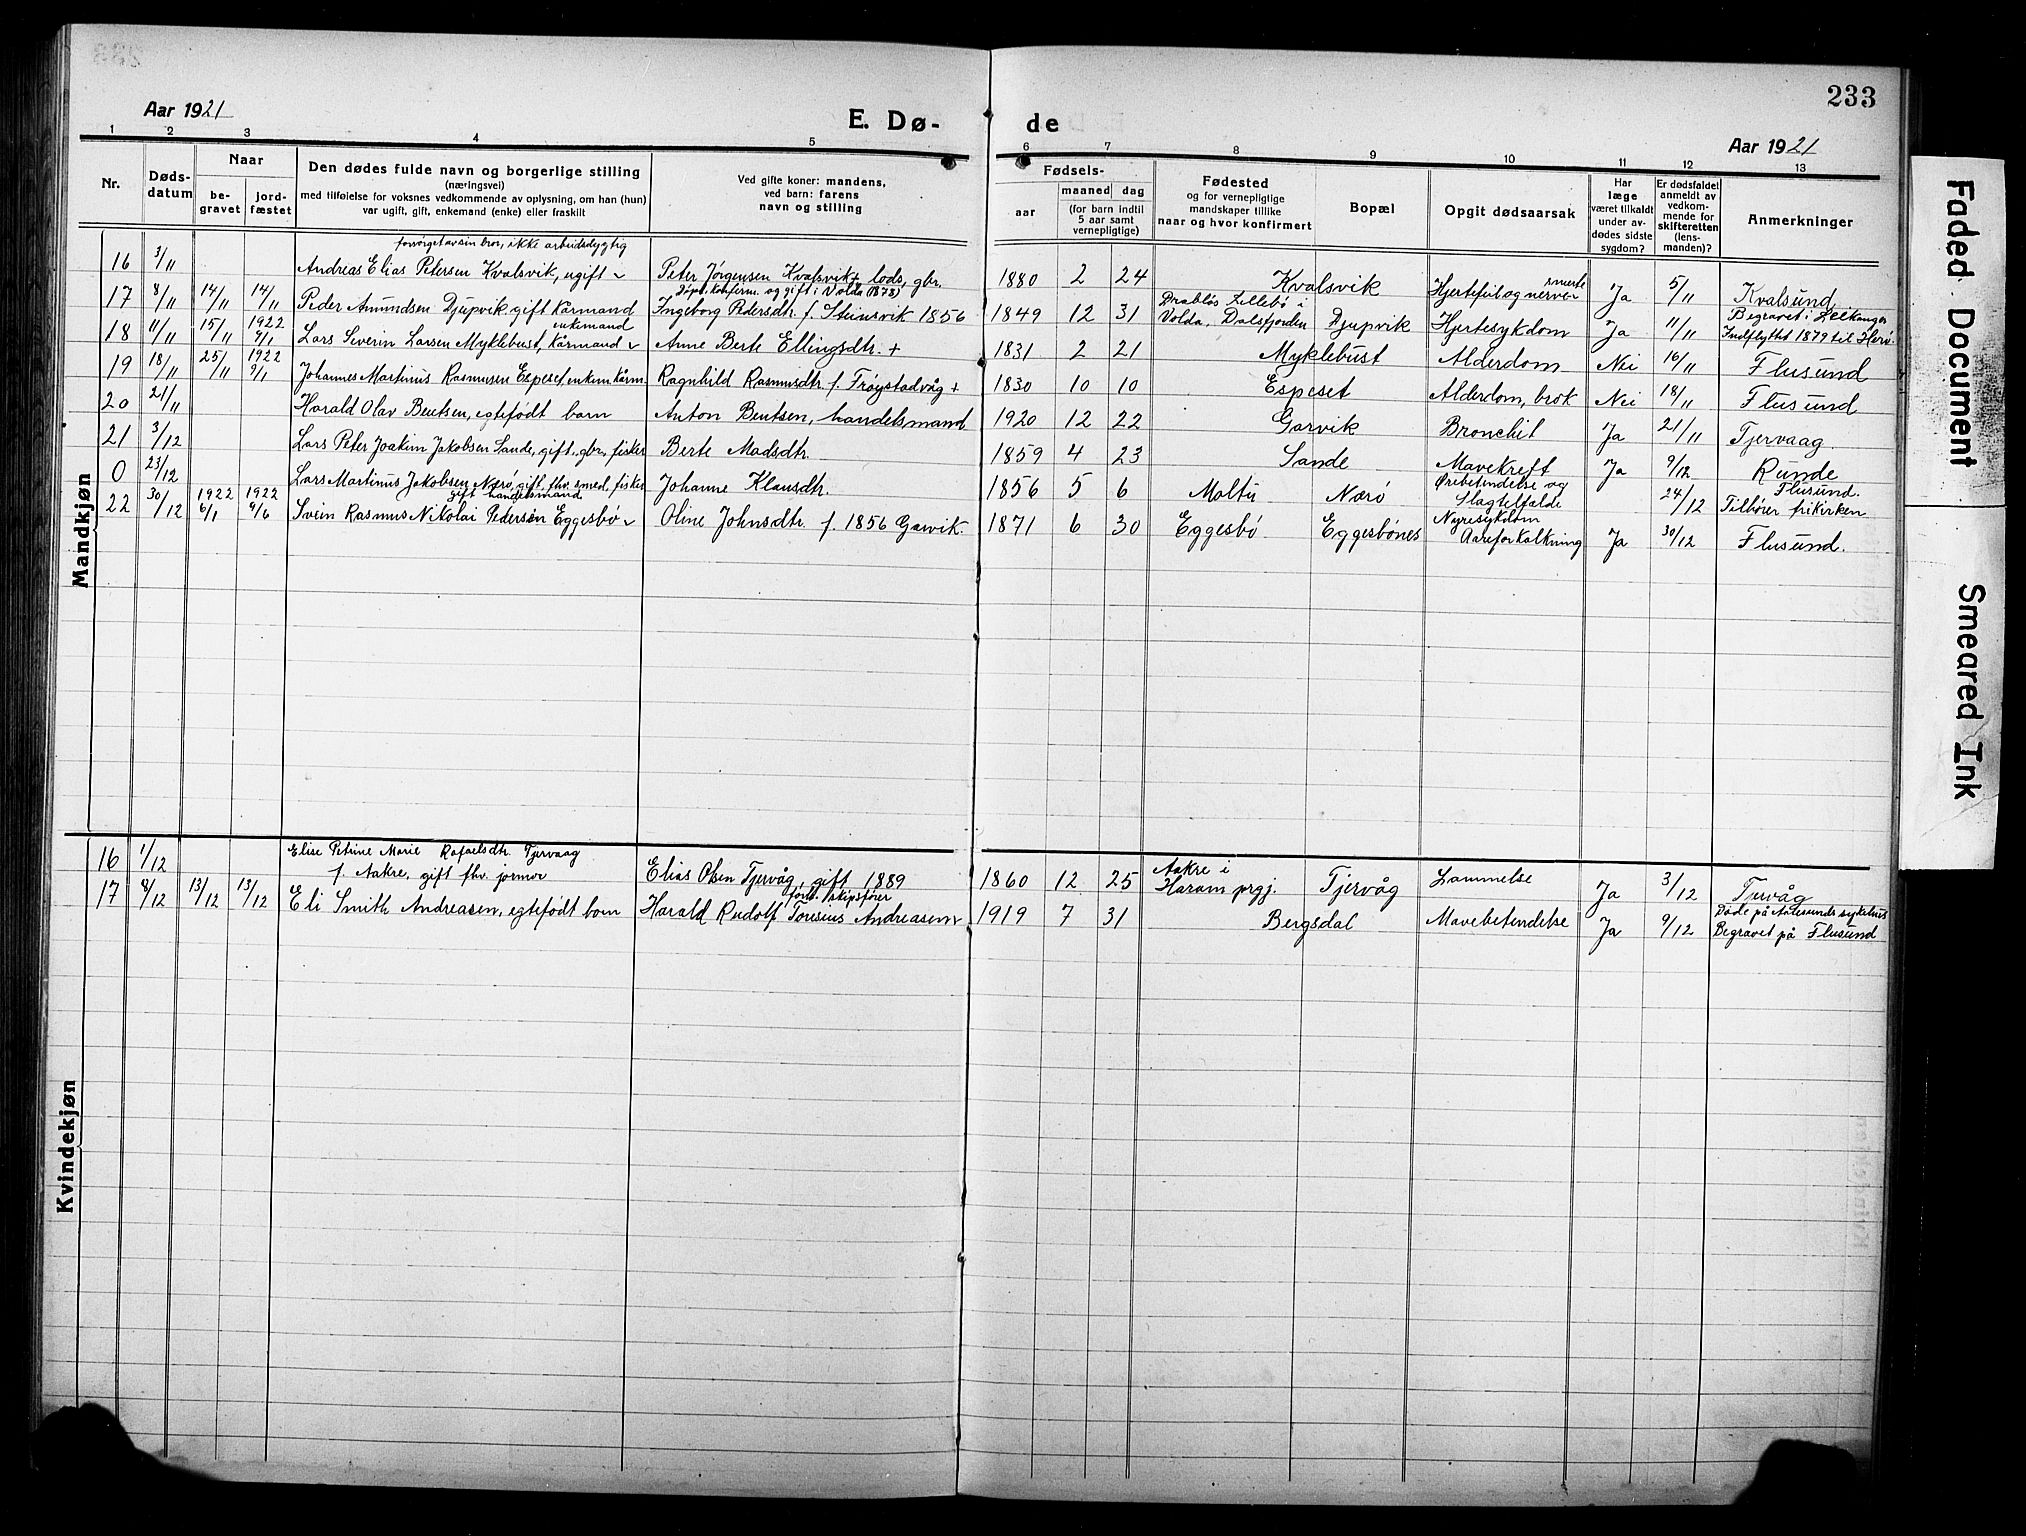 233
Aar 1921
E. Dø-
de
Aar 1921
1 2 3 4 5 6 7 8 9 10 11 12 13
Nr.
Døds-
datum
Naar
be-
gravet
jord-
fæstet
Den dødes fulde navn og borgerlige stilling
(næringsvei)
med tilføielse for voksnes vedkommende av oplysning, om han (hun)
var ugift, gift, enkemand (enke) eller fraskilt
Ved gifte koner: mandens,
ved barn: farens
navn og stilling
Fødsels-
aar
maaned dag
(for barn indtil
5 aar samt
vernepligtige)
Fødested
og for vernepligtige
mandskaper tillike
naar og hvor konfirmert
Bopæl
Opgit dødsaarsak
Har
læge
været tilkaldt
under av-
dødes sidste
sygdom?
Er dødsfaldet
anmeldt av
vedkom-
mende for
skifteretten
(lens-
manden)?
Anmerkninger
Mandkjøn
forsørget av sin bror, ikke arbeidsdygtig
16 3/11 Andreas Elias Petersen Kvalsvik, ugift Peter Jørgensen Kvalsvik + lods, gbr. 1880 2 24 Kvalsvik Hjertefeil og nerve- smerte Ja 5/11 Kvalsund
Døpt, konfirm. og gift i Volda (1878)
17 8/11 14/11 14/11 Peder Amundsen Djupvik gift Kårmand Ingeborg Pedersdtr. f. Steinsvik 1856 1849 12 31 Drabløs Lillebø i Volda, Dalsfjorden Djupvik Hjertesykdom Ja 11/11 Begravet i Leikanger Indflyttet 1879 til Herø.
18 11/11 15/11 1922 9/1 Lars Severin Larsen Myklebust, enkemand Kårmand Anne Berte Ellingsdtr. + 1831 2 21 Myklebust Alderdom Nei 16/11 Flusund
19 18/11 25/11 1922 9/1 Johannes Martinus Rasmussen Espeset enkem kårm. Ragnhild Rasmusdtr. f. Frøystadvåg + 1830 10 10 Espeset Alderdom, brok Nei 18/11 Flusund
20 21/11 Harald Olav Bentsen, egtefødt barn Anton Bentsen, handelsmand 1920 12 22 Garvik Bronchit Ja 21/11 Tjervaag
21 3/12 Lars Peter Joakim Jakobsen Sande, gift, gbr, fisker Berte Madsdtr. 1859 4 23 Sande Mavekreft Ja 9/12 Runde
0 23/12 Lars Martinus Jakobsen Nærø, gift, fhv. smed, fisker Johanne Klausdtr. 1856 5 6 Moltu Nærø Ørebetendelse og Slagtilfælde 24/12 Flusund. Tilhører frikirken
22 30/12 1922 6/1 1922 4/6 gift handelsmand Svein Rasmus Nikolai Pedersen Eggesbø Oline Johnsdtr. f. 1856 Garvik. 1871 6 30 Eggesbø Eggesbønes Nyresykdom Aareforkalkning Ja 30/12 Flusund.
Kvindekjøn
16 1/12 Elise Petrine Marie Rafaelsdtr. Tjervaag
f. Aakre, gift fhv. jormor Elias Olsen Tjervåg, gift 1889 1860 12 25 Aakre i Haram prgj. Tjervåg Lammelse Ja 3/12 Tjervåg
17 8/12 13/12 13/12 Eli Smith Andreasen, egtefødt barn Harald Rudolf Toresius Andreasen 1919 7 31 Bergsdal Mavebetendelse Ja 9/12 Døde på Aalesunds sykehus Begravet på Flusund
Faded Document
Smeared Ink